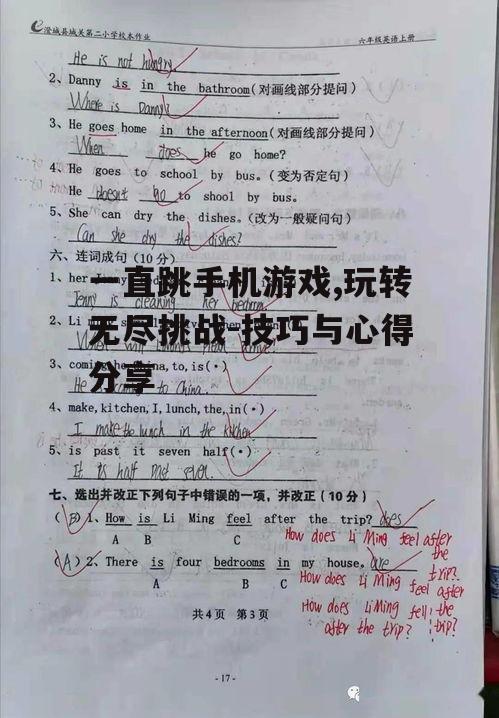 澄城县城关第二小学校本作业 六年级英语上册
He is not hungry
2、Danny is in the bathroom(对画线部分提问)
Where is Danny?
3、He goes home in the afternoon(对画线部分提问)
When does he go home?
4、He goes to school by bus。(变为否定句)
He doesn't go to shool by bus.
5、She can dry the dishes.(改为一般疑问句)
Can she dry the dishes?
六、连词成句(10分)
一直跳手机游戏,玩转
1、her
Jenny is cleaning her bedroom.
无尽挑战-技巧与心得
2、Li
分享
to,is(·)
to China.
4、make,kitchen,I,lunch,the,in(·)
I make the lunch in the kitchen
5、is past it seven half(·)
It is half past seven.
七、选出并改正下列句子中错误的一项,并改正(10分)
(B)1、How is Li Ming feel after the trip? does
A B C
How does Li Ming feel after the trip?
(A)2、There is four bedrooms in my house. are
A B C
How does Li Ming feel after the trip?
How does Li Ming fell after the trip?
共4页 第3页
-17-